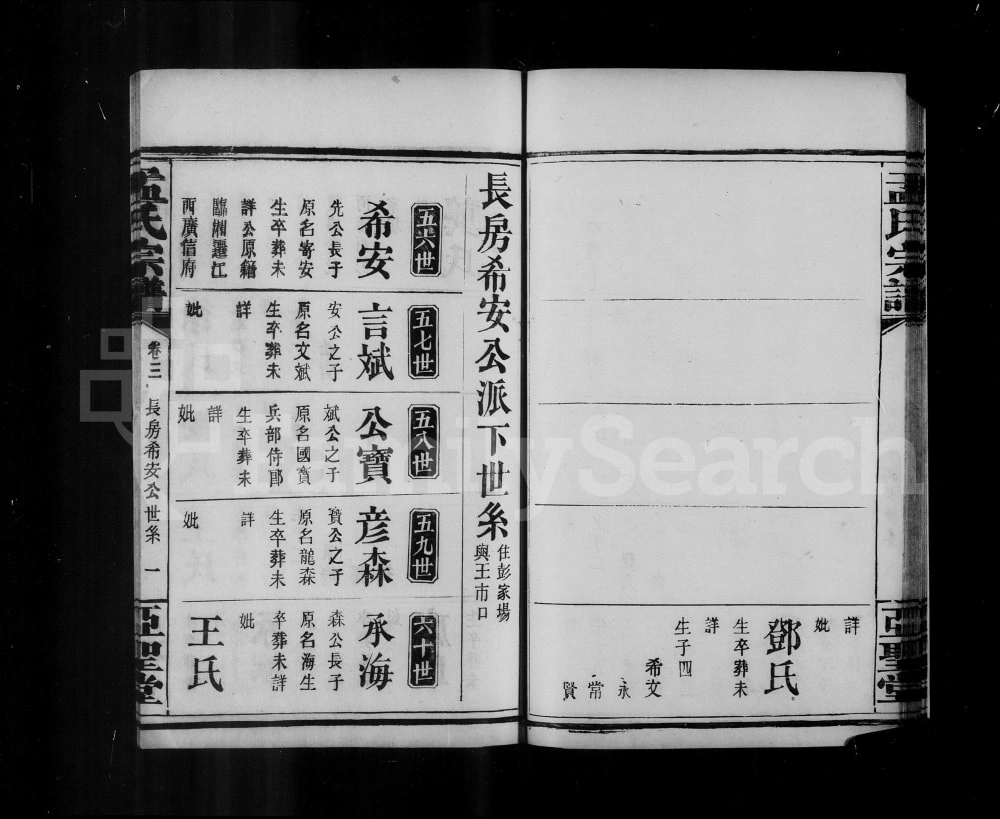 孟氏宗譜
亞聖堂
詳
妣
鄧氏
生卒葬未
詳
生子四
希文
永
常
賢
長房希安公派下世系
住彭家場
與王市口
五六世
希安
先公長子
原名寄安
生卒葬未
詳公原籍
臨湘遷江
西廣信府
五七世
言斌
安公之子
原名文斌
生卒葬未
詳
妣
五八世
公寶
斌公之子
原名國寶
兵部侍郎
生卒葬未
詳
妣
五九世
彥森
寶公之子
原名龍森
生卒葬未
詳
妣
六十世
承海
森公長子
原名海生
卒葬未詳
妣
王氏
孟氏宗譜
卷三
長房希安公世系
一
亞聖堂
FamilySearch